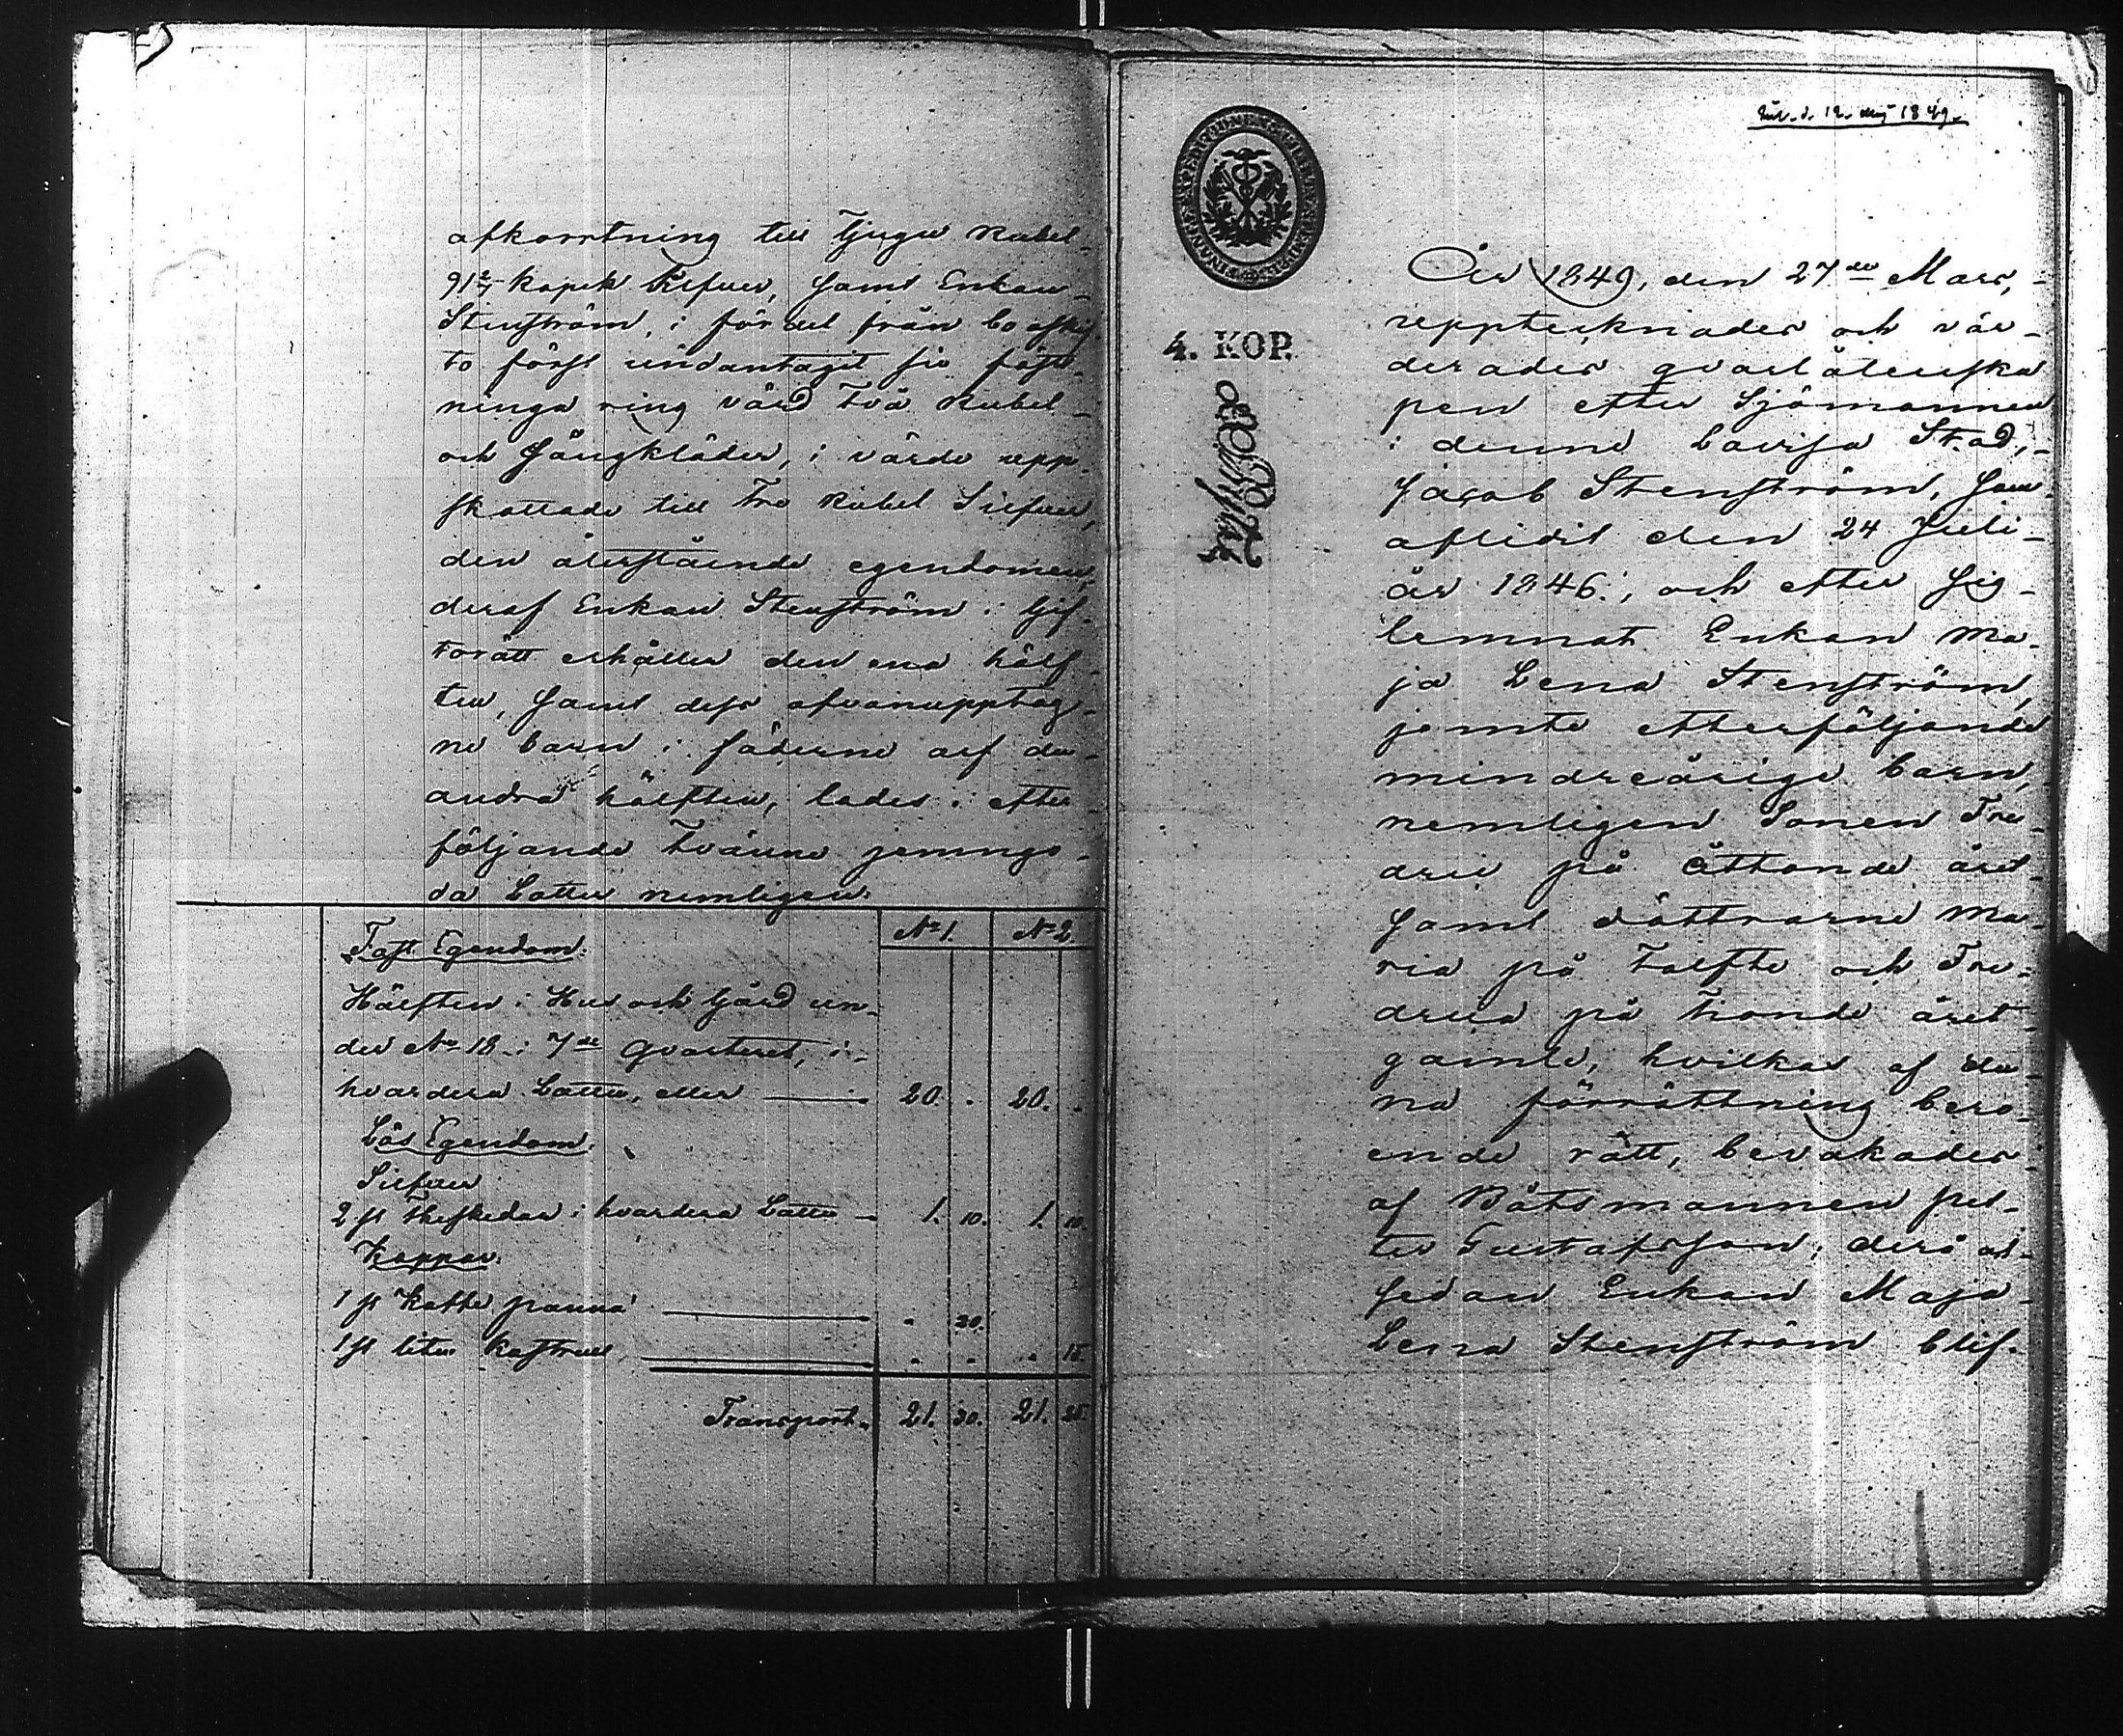 afkorrtning till Tjugu Rubel-
91 2/7 kopek Silfver, samt Enkan-
Stenström, i fördel från bo oskif
to först undantagit sin fäst-
ninga ring värd två Rubel-
och Sängkläder, i värde upp-
skattade till Tre Rubel Silfver,
den återstående egendomen,
deraf Enkan Stenström i Gif-
torätt erhåller den ena hälf-
ten, samt dess ofvanupptag-
ne barn i fäderne arf den
andra hälften, lades i efter-
följande tvänne jemngo-
da Lotter nemligen:
No 1. No 2.
Fast Egendom:
Hälften i Hus och Gård un-
der No 18 i 7de Qvarteret, i-
hvardera Lotten, eller 20. . 20. .
Lös Egendom:
Silfver
2 st Theskedar i hvardera Lotten 1. 10. 1. 10.
Koppar.
1 st Kaffe panna . 20.
1 st liten Kastrull . . . 15.
Transport. 21. 30. 21. 25.
d. 12. Maj 1849.
4. KOP.
År 1849, den 27de Mars,-
upptecknades och vär-
derades qvarlåtenska
pen efter Sjömannen
i denne Lovisa Stad,-
Jacob Stenström, som
aflidit den 24 Juli-
år 1846., och efter sig-
lemnat Enkan Ma-
ja Lena Stenström,
jemte efterföljande
mindreårige barn,
nemligen Sonen Fre-
dric på åttonde året-
samt döttrarne Ma-
ria på tolfte och Fre-
drica på tionde året-
gamle, hvilkas af den-
na förrättning bero-
ende rätt, bevakades
af Båtsmannen Pet-
ter Gustafsson; derå al-
sedan Enkan Maja-
Lena Stenström blif-